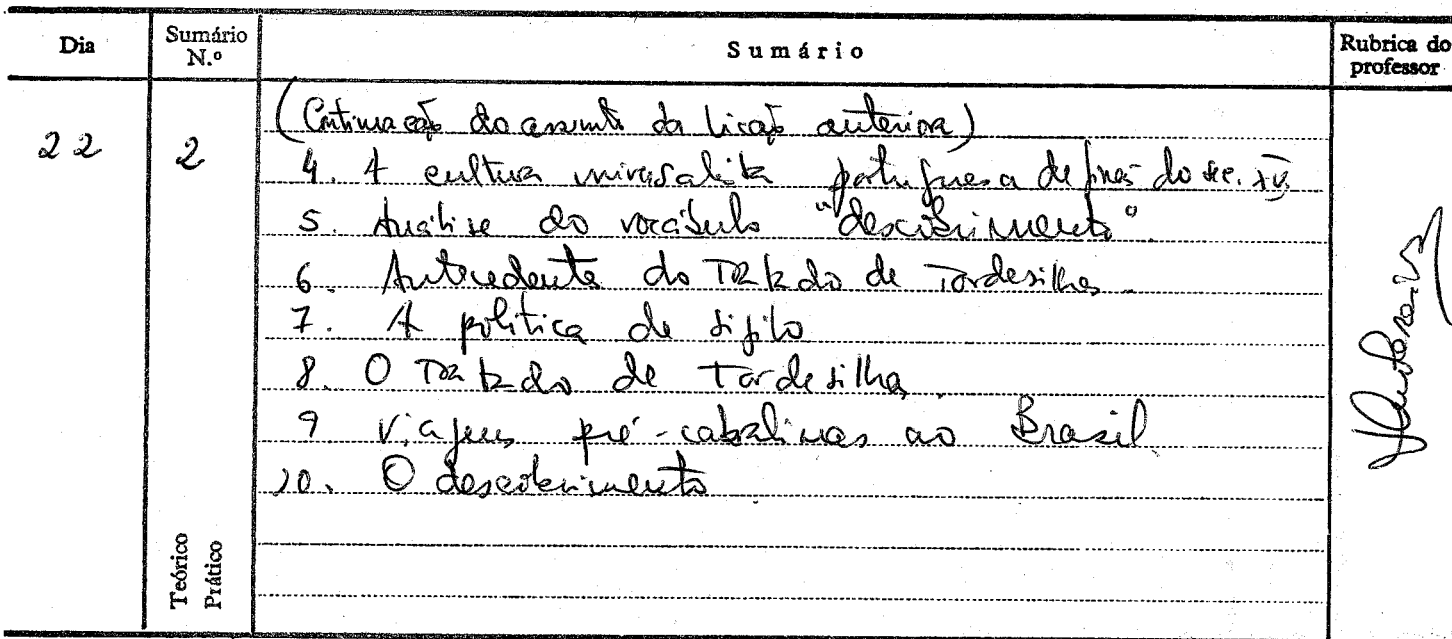 Dia Sumário N.º Sumário Rubrica do professor
22 2 (Continuação do assunto da lição anterior)
4. A cultura universalista portuguesa de fins do sec. XV
5. Análise do vocábulo "descobrimento".
6. Antecedentes do Tratado de Tordesilhas
7. A política de sigilo
8. O Tratado de Tordesilhas
9 Viagens pré-cabralinas ao Brasil
10. O descobrimento
Teórico
Prático